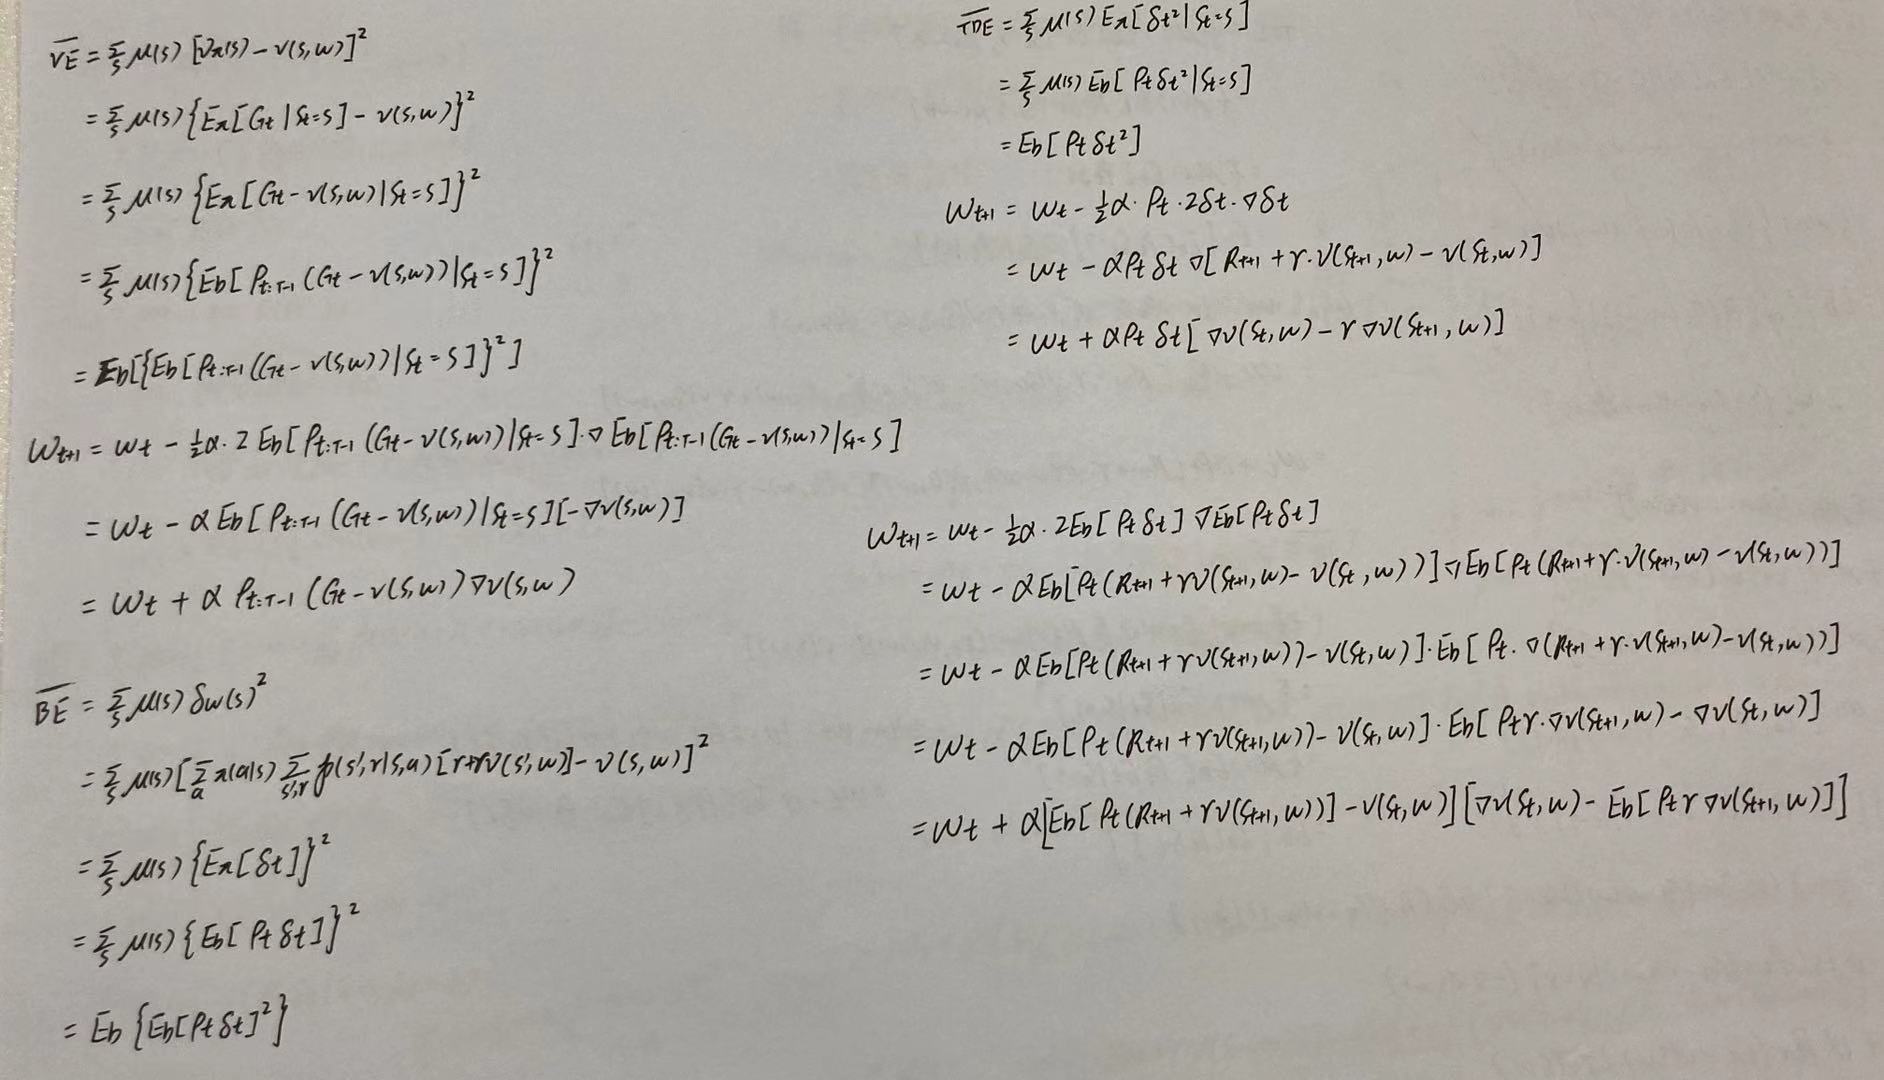 V̅E̅ = Σ_s μ(s) [vπ(s) - v(s,w)]²
= Σ_s μ(s) {Eπ[Gt | St=s] - v(s,w)}²
= Σ_s μ(s) {Eπ[Gt - v(s,w) | St=s]}²
= Σ_s μ(s) {Eb[ρt:T-1 (Gt - v(s,w)) | St=s]}²
= Eb[{Eb[ρt:T-1 (Gt - v(s,w)) | St=s]}²]
Wt+1 = wt - ½α· 2 Eb[ρt:T-1 (Gt - v(s,w)) | St=s]·∇Eb[ρt:T-1 (Gt - v(s,w)) | St=s]
= wt - α Eb[ρt:T-1 (Gt - v(s,w)) | St=s][-∇v(s,w)]
= wt + α ρt:T-1 (Gt - v(s,w)) ∇v(s,w)
B̅E̅ = Σ_s μ(s) δw(s)²
= Σ_s μ(s) [Σ_a π(a|s) Σ_s',r p(s',r|s,a) [r+γv(s',w)] - v(s,w)]²
= Σ_s μ(s) {Eπ[δt]}²
= Σ_s μ(s) {Eb[ρt δt]}²
= Eb {Eb[ρt δt]²}
T̅D̅E̅ = Σ_s μ(s) Eπ[δt² | St=s]
= Σ_s μ(s) Eb[ρt δt² | St=s]
= Eb[ρt δt²]
Wt+1 = wt - ½α· ρt· 2δt· ∇δt
= wt - αρt δt ∇[Rt+1 + γ·v(St+1,w) - v(St,w)]
= wt + αρt δt [∇v(St,w) - γ∇v(St+1,w)]
Wt+1 = wt - ½α· 2Eb[ρt δt] ∇Eb[ρt δt]
= wt - αEb[ρt(Rt+1 + γv(St+1,w) - v(St,w))]∇Eb[ρt(Rt+1 + γ·v(St+1,w) - v(St,w))]
= wt - αEb[ρt(Rt+1 + γv(St+1,w)) - v(St,w)]·Eb[ρt·∇(Rt+1 + γ·v(St+1,w) - v(St,w))]
= wt - αEb[ρt(Rt+1 + γv(St+1,w)) - v(St,w)]·Eb[ρtγ·∇v(St+1,w) - ∇v(St,w)]
= wt + α[Eb[ρt(Rt+1 + γv(St+1,w))] - v(St,w)][∇v(St,w) - Eb[ρtγ∇v(St+1,w)]]